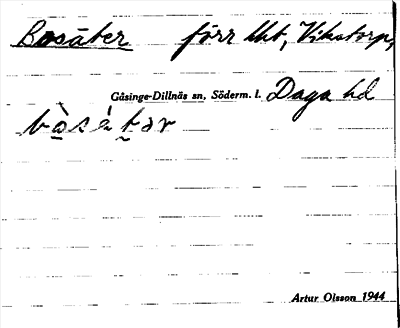 Bosäter förr lht, Vikstorp,
Gåsinge-Dillnäs sn, Söderm. l. Daga hd
Artur Olsson 1944